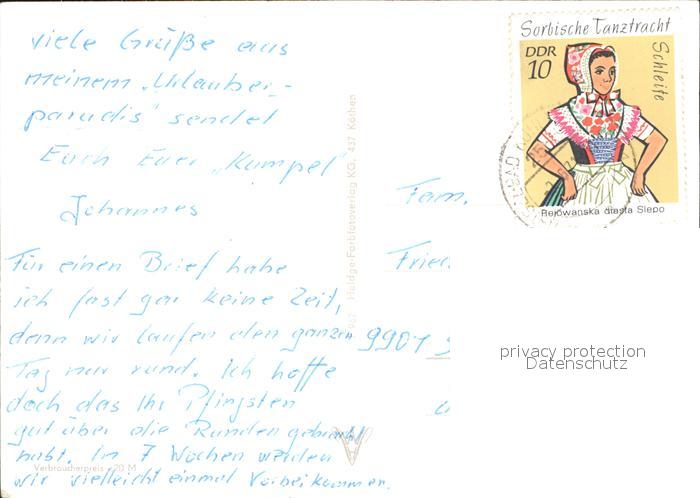 viele Grüße aus
meinem „Urlauber-
paradis" sendet
Euch Euer „Kumpel"
Johannes
Für einen Brief habe
ich fast gar keine Zeit,
denn wir laufen den ganzen
Tag nur rund. Ich hoffe
doch das Ihr Pfingsten
gut über die Runden gebracht
habt. In 7 Wochen werden
wir vielleicht einmal Vorbeikommen.
Verbraucherpreis -,20 M
Heldge-Farbfotoverlag KG, 437 Köthen
Sorbische Tanztracht
Schleife
DDR
10
Rejowanska drasta Slepo
Fam.
Fried
9901
privacy protection
Datenschutz